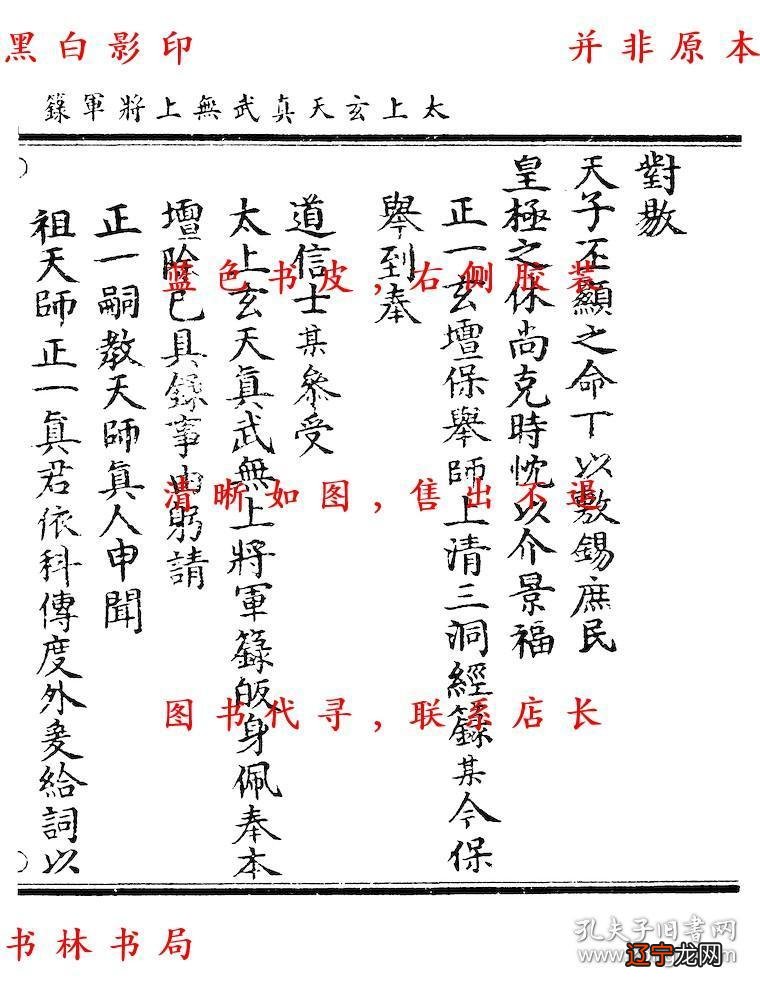 黑白影印
并非原本
太上玄天真武無上將軍籙
對敭
天子丕顯之命丅以敷錫庶民
皇極之休尚克時忱以介景福
正一玄壇保舉師上清三洞經籙某今保
舉到奉
道信士某叅受
太上玄天真武無上將軍籙皈身佩奉本
壇除已具錄事由躬請
正一嗣教天師真人申聞
祖天師正一真君依科傳度外爰給詞以
蓝色书皮,右侧胶装
清晰如图,售出不退
图书代寻,联系店长
书林书局
孔夫子旧书网
辽宁龙网